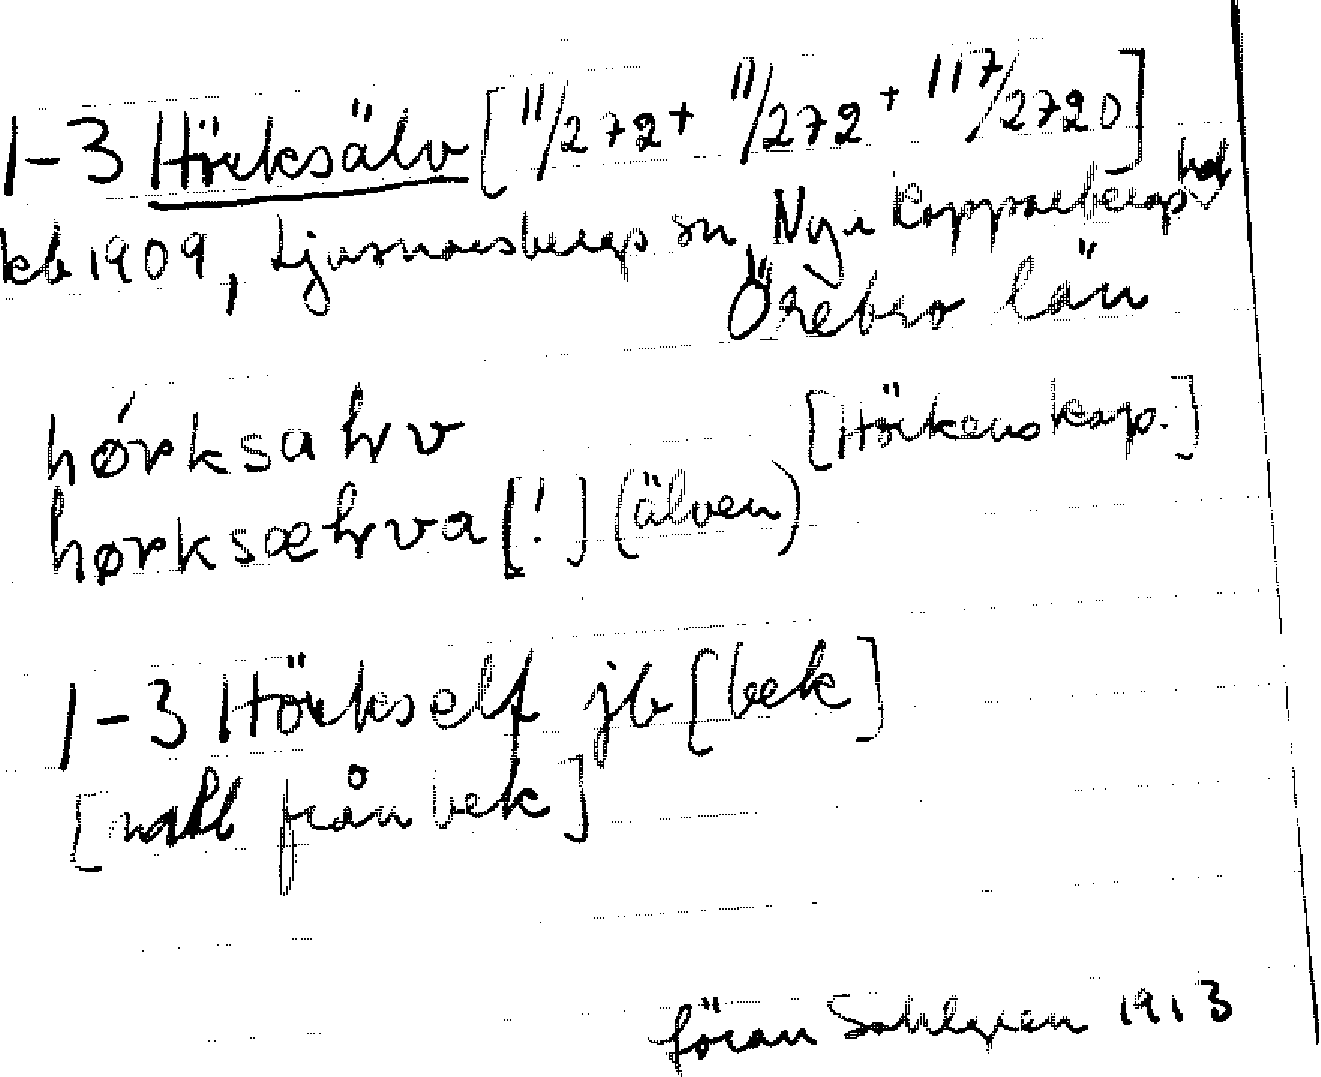 1-3 Hörksälv [11/272+ 11/272+ 117/2720]
kb 1909, Ljusnarsbergs sn, Nya Kopparbergs hd
Örebro län
hǿrksahv
[Hörkens kap.]
hørksæhva [!] (älven)
1-3 Hörkself jb [bek]
från bek]
Jöran Sahlgren 1913